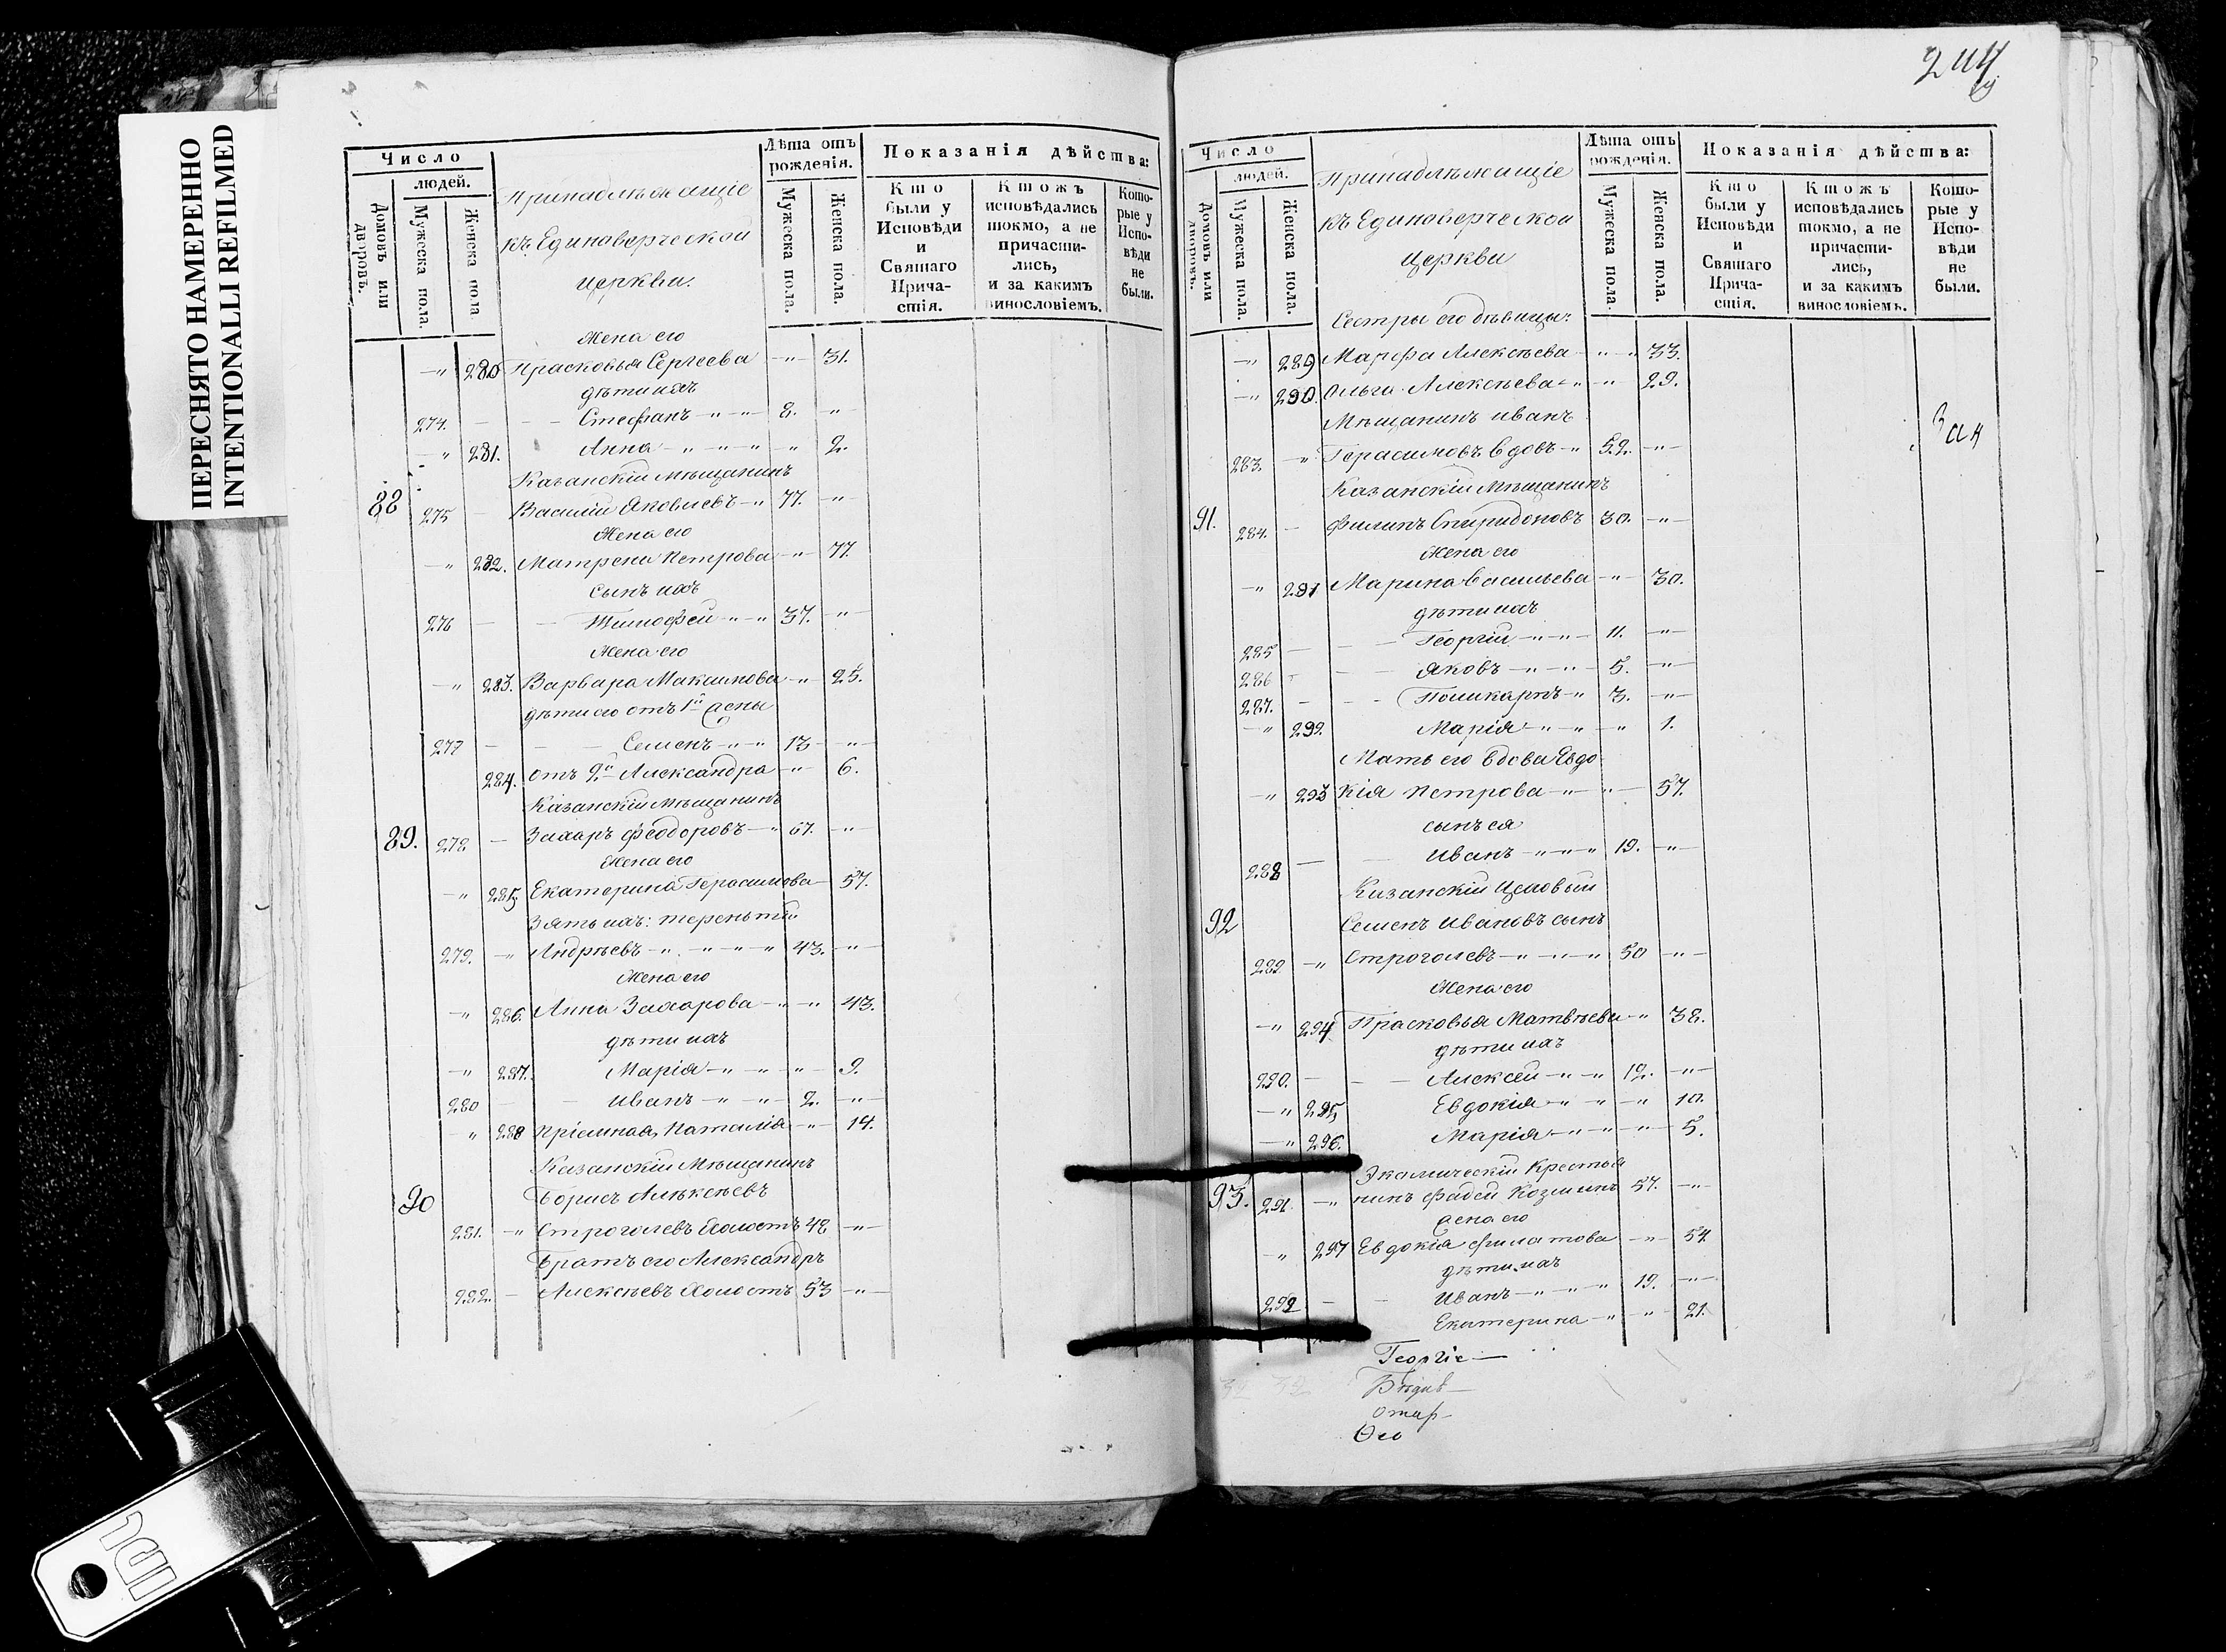 ПЕРЕСНЯТО НАМЕРЕННО
INTENTIONALLI REFILMED
Число
людей.
Домовъ или дворовъ.
Мужеска пола.
Женска пола
Принадлѣжащіе
къ Единоверческой
церкви.
Лѣта отъ рожденія.
Мужеска пола.
Женска пола.
Показанія дѣйства:
Кто были у Исповѣди и Святаго Прича-стія.
Ктожъ исповѣдались токмо, а не причасти-лись, и за какимъ винословіемъ.
Кото-рые у Испо-вѣди не были.
Жена его
-"- 280 Прасковья Сергеева -"- 31.
дѣти ихъ
274. - - Стефанъ -"-"- 8. -"-
-"- 281. Анна -"-"-"- 2.
Казанскій мѣщанинъ
88 275 - Василій Яковлевъ -"- 77. -"-
Жена его
-"- 282. Матрена Петрова -"- 77.
Сынъ ихъ
276 - - Тимофей -"-"- 37. -"-
Жена его
-"- 283. Варвара Максимова -"- 25.
дѣти его отъ 1й жены
277 - - Семенъ -"-"- 13 -"-
284. отъ 2й Александра -"- 6.
Казанскій мѣщанинъ
89. 278 - Захаръ Феодоровъ -"- 67. -"-
Жена его
-"- 285 Екатерина Герасимова - 57.
Зять ихъ: терентій
279. -"- Андрѣевъ -"-"-"- 43. -"-
Жена его
-"- 286. Анна Захарова -"-"- 43.
дѣти ихъ
-"- 287. Марія -"-"-"- 9.
280 - - Иванъ -"-"- 2. -"-
" 288 Пріемная, Наталія -"- 14.
Казанскій Мѣщанинъ
90 Борисъ Алѣксѣевъ
281. -"- Строголевъ Холостъ 48 -"-
Братъ его Александръ
282. - Алексѣевъ Холостъ 53 -"-
244
Число
людей.
Домовъ или дворовъ.
Мужеска пола.
Женска пола.
Принадлѣжащіе
къ Единоверческой
церкви
Лѣта отъ рожденія.
Мужеска пола.
Женска пола.
Показанія дѣйства:
Кто были у Исповѣди и Святаго Прича-стія.
Ктожъ исповѣдались токмо, а не причасти-лись, и за какимъ винословіемъ.
Кото-рые у Испо-вѣди не были.
Сестры его дѣвицы:
-"- 289 Марфа Алексѣева -"-"- 33.
-"- 290. Ольга Алексѣева -"-"- 29.
Мѣщанинъ иванъ
283. -"- Герасимовъ вдовъ -"- 52. -"-
Казанскій Мѣщанинъ
91. 284. - Филипъ Спиридоновъ 30. -"-
Жена его
-"- 291 Марина Васильева -"- 30.
дѣти ихъ
285 - - Георгій -"-"- 11. -"-
286 - Яковъ -"-"- 5. -"-
287. - - Поликарпъ -"- 3. -"-
-"- 292. Марія -"-"-"- 1.
Мать его вдова Евдо
-"- 293 кія Петрова -"-"- 57.
сынъ ея
288 - - Иванъ -"-"-"- 19. -"-
Казанскій Цеховый
92 Семенъ Ивановъ сынъ
289 -"- Строголевъ -"-"-"- 50 -"-
Жена его
-"- 294 Прасковья Матвѣева -"- 38.
дѣти ихъ
290. - - Алексей -"-"- 12. -"-
-"- 295, Евдокія -"-"-"- 10.
-"- 296. Марія -"-"-"- 5.
Экамическій Крестья
93. 291. -"- нинъ Фадей Козминъ 57. -"-
жена его
" 297 Евдокія Филатова -"- 54.
дѣти ихъ
292 - - Иванъ -"-"-"- 19. -"-
Екатерина -"-"- 21.
Георгіе—